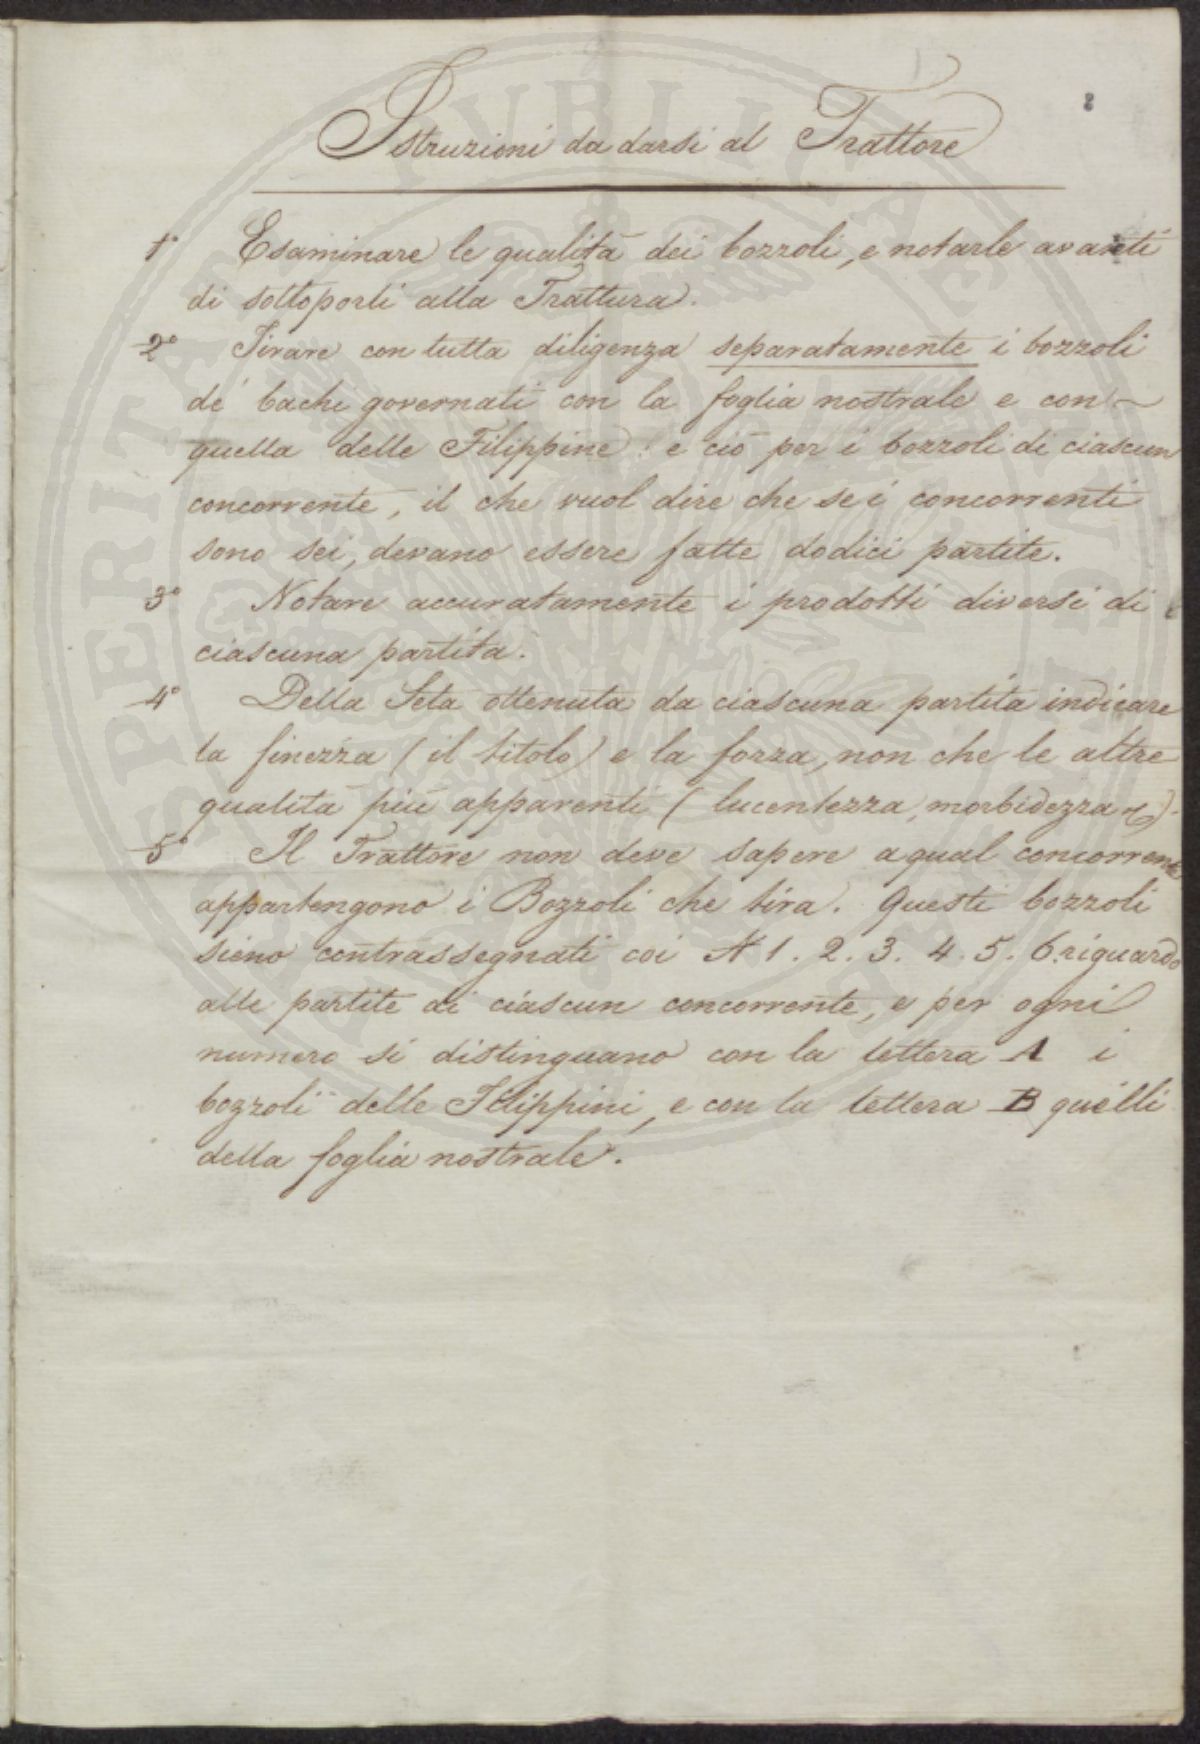 2
Istruzioni da darsi al Trattore
1° Esaminare le qualità dei bozzoli, e notarle avanti
di sottoporli alla Trattura.
2° Tirare con tutta diligenza separatamente i bozzoli
de' bachi governati con la foglia nostrale e con
quella delle Filippine: e ciò per i bozzoli di ciascun
concorrente, il che vuol dire che se i concorrenti
sono sei, devano essere fatte dodici partite.
3° Notare accuratamente i prodotti diversi di
ciascuna partita.
4° Della Seta ottenuta da ciascuna partita indicare
la finezza (il titolo) e la forza, non che le altre
qualità più apparenti (lucentezza, morbidezza &).
5° Il Trattore non deve sapere a qual concorrente
appartengono i Bozzoli che tira. Questi bozzoli
sieno contrassegnati coi N 1. 2. 3. 4. 5. 6. riguardo
alle partite di ciascun concorrente, e per ogni
numero si distinguano con la lettera A i
bozzoli delle Filippini, e con la lettera B quelli
della foglia nostrale.